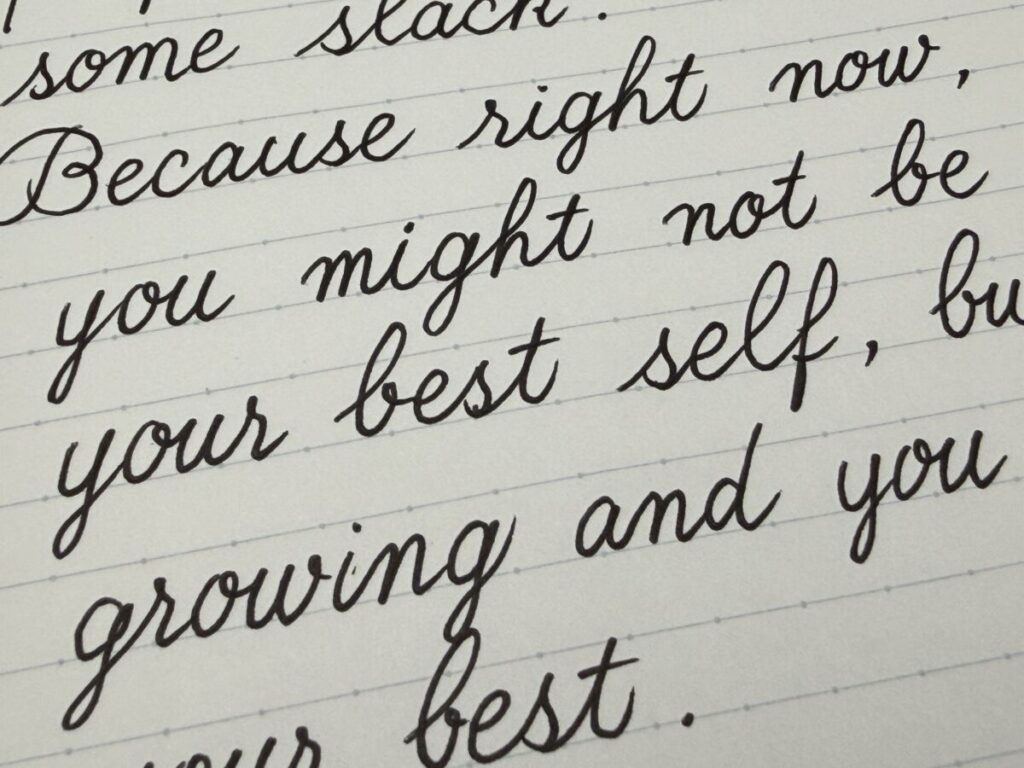 some slack.
Because right now,
you might not be
your best self, bu
growing and you
your best.